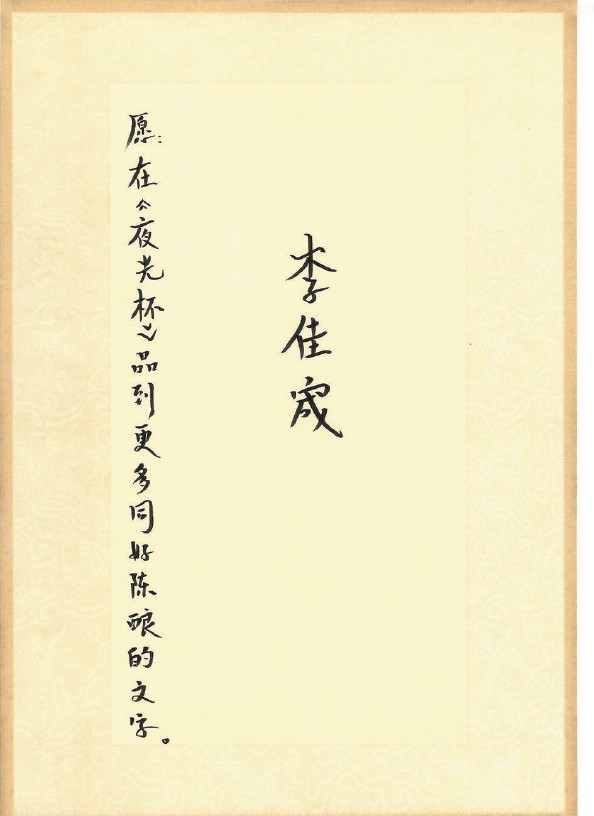 李佳宬
愿:在《夜光杯》品到更多同好陈酿的文字。